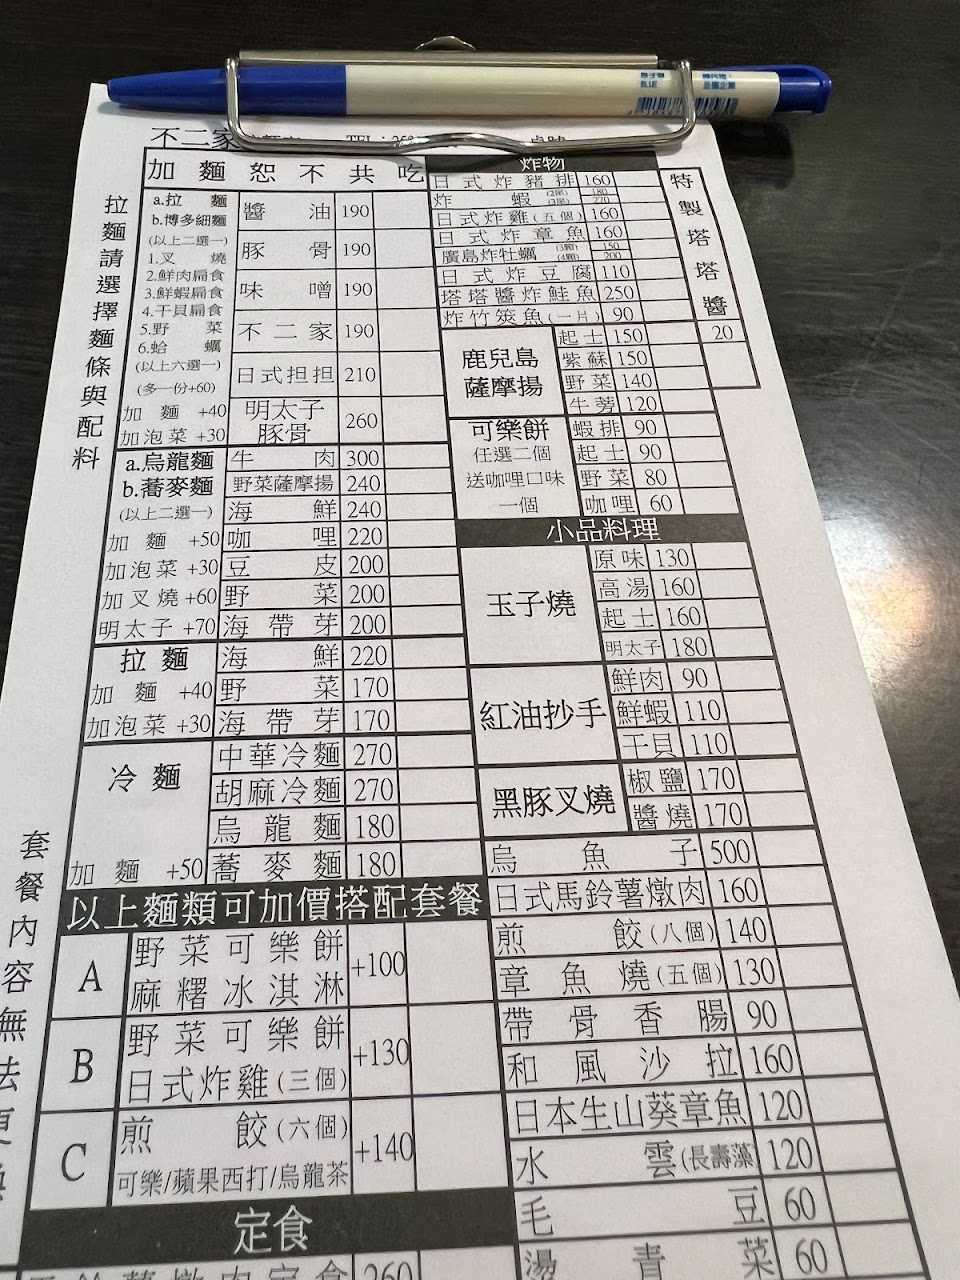 BLUE
不二家
TEL:
拉麵請選擇麵條與配料
加麵恕不共吃
a.拉麵
b.博多細麵
(以上二選一)
1.叉燒
2.鮮肉扁食
3.鮮蝦扁食
4.干貝扁食
5.野菜
6.蛤蠣
(以上六選一)
(多一份+60)
加麵 +40
加泡菜 +30
醬油 190
豚骨 190
味噌 190
不二家 190
日式担担 210
明太子豚骨 260
a.烏龍麵
b.蕎麥麵
(以上二選一)
加麵 +50
加泡菜 +30
加叉燒 +60
明太子 +70
牛肉 300
野菜薩摩揚 240
海鮮 240
咖哩 220
豆皮 200
野菜 200
海帶芽 200
拉麵
加麵 +40
加泡菜 +30
海鮮 220
野菜 170
海帶芽 170
冷麵
加麵 +50
中華冷麵 270
胡麻冷麵 270
烏龍麵 180
蕎麥麵 180
套餐內容無法更換
以上麵類可加價搭配套餐
A 野菜可樂餅 麻糬冰淇淋 +100
B 野菜可樂餅 日式炸雞(三個) +130
C 煎餃(六個) 可樂/蘋果西打/烏龍茶 +140
定食
260
炸物
日式炸豬排 160
炸蝦 (2尾) 180 (3尾) 270
日式炸雞(五個) 160
日式炸章魚 160
廣島炸牡蠣 (3顆) 150 (4顆) 200
日式炸豆腐 110
塔塔醬炸鮭魚 250
炸竹筴魚(一片) 90
特製塔塔醬 20
鹿兒島薩摩揚
起士 150
紫蘇 150
野菜 140
牛蒡 120
可樂餅
任選二個
送咖哩口味
一個
蝦排 90
起士 90
野菜 80
咖哩 60
小品料理
玉子燒
原味 130
高湯 160
起士 160
明太子 180
紅油抄手
鮮肉 90
鮮蝦 110
干貝 110
黑豚叉燒
椒鹽 170
醬燒 170
烏魚子 500
日式馬鈴薯燉肉 160
煎餃(八個) 140
章魚燒(五個) 130
帶骨香腸 90
和風沙拉 160
日本生山葵章魚 120
水雲(長壽藻) 120
毛豆 60
湯青菜 60